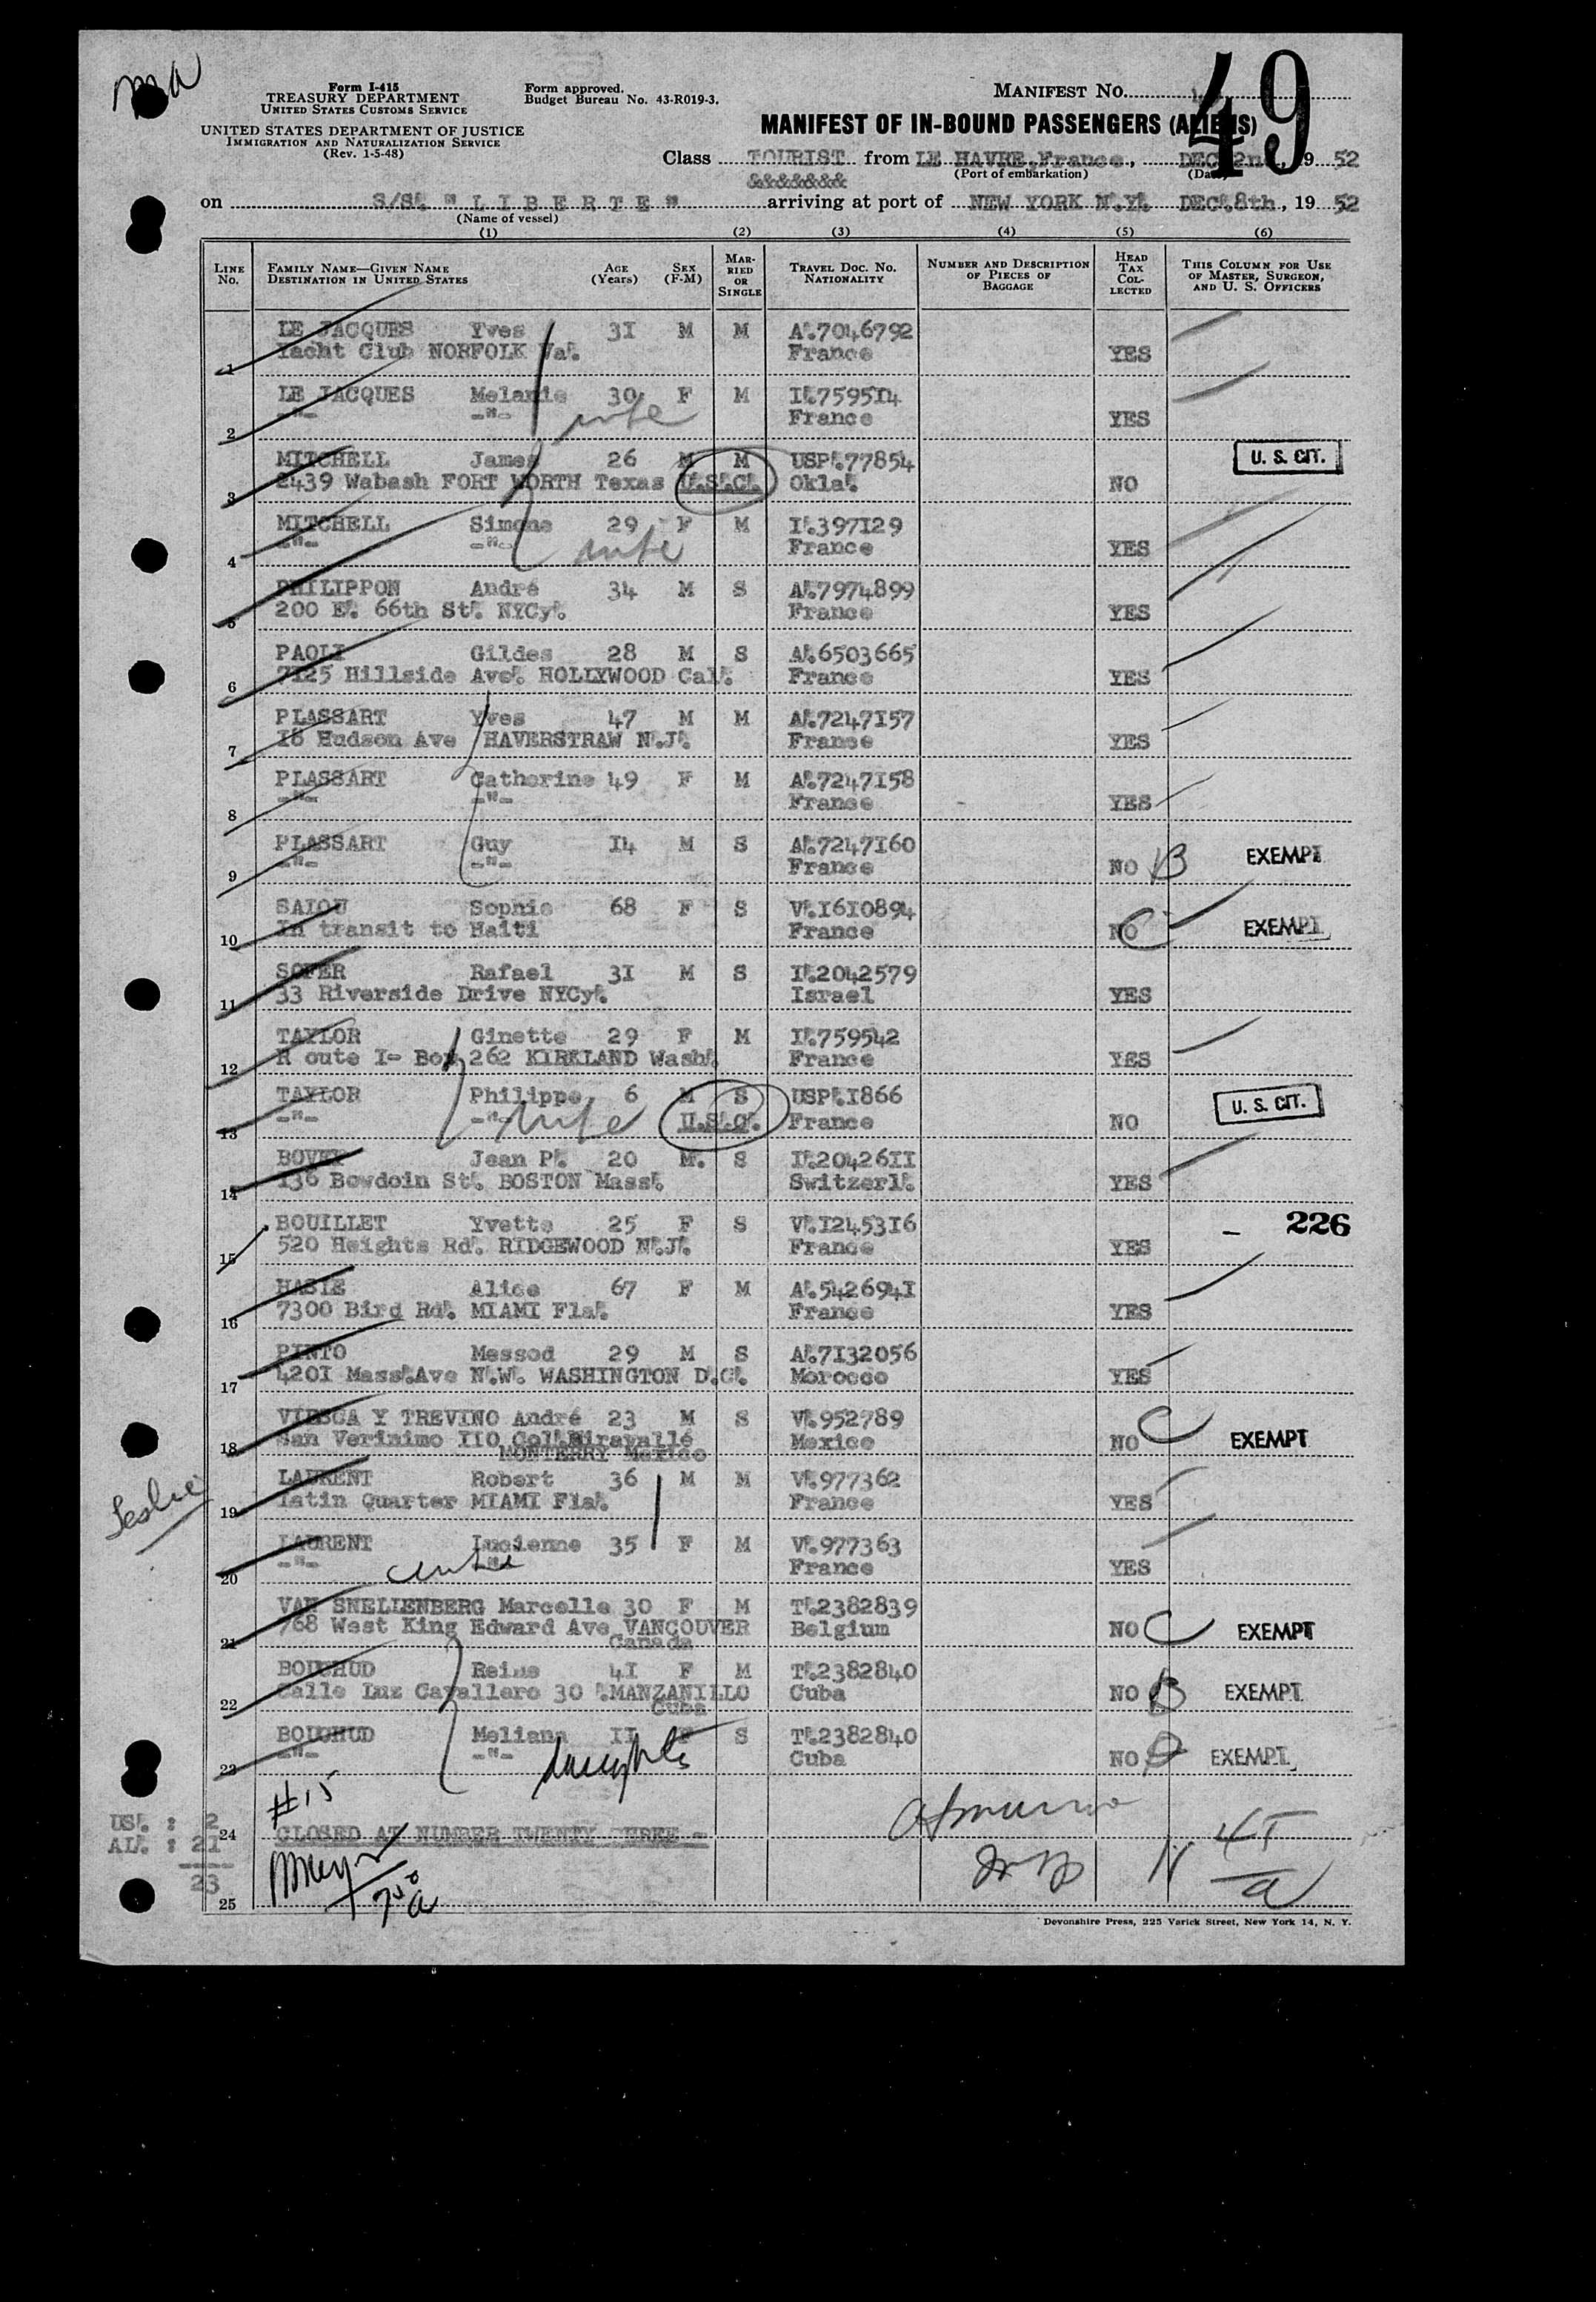 49
Form I-415
TREASURY DEPARTMENT
UNITED STATES CUSTOMS SERVICE
UNITED STATES DEPARTMENT OF JUSTICE
IMMIGRATION AND NATURALIZATION SERVICE
(Rev. 1-5-48)
Form approved.
Budget Bureau No. 43-R019-3.
MANIFEST NO.
MANIFEST OF IN-BOUND PASSENGERS (ALIENS)
Class TOURIST from LE HAVRE, France, DEC 2nd, 19 52
(Port of embarkation) (Date)
&&&&&&&
on S/S. " L I B E R T E " arriving at port of NEW YORK N.Y. DEC. 8th, 19 52
(Name of vessel)
(1) (2) (3) (4) (5) (6)
LINE NO. FAMILY NAME—GIVEN NAME DESTINATION IN UNITED STATES AGE (Years) SEX (F-M) MARRIED OR SINGLE TRAVEL DOC. NO. NATIONALITY NUMBER AND DESCRIPTION OF PIECES OF BAGGAGE HEAD TAX COLLECTED THIS COLUMN FOR USE OF MASTER, SURGEON, AND U. S. OFFICERS
LE JACQUES Yves 31 M M A.7046792
1 Yacht Club NORFOLK Va. France YES
LE JACQUES Melanie 30 F M I.759514
2 -"- -"- wife France YES
MITCHELL James 26 M M USP.77854 U. S. CIT.
3 2439 Wabash FORT WORTH Texas U.S.C. Okla. NO
MITCHELL Simone 29 F M I.397129
4 -"- -"- wife France YES
PHILIPPON André 34 M S A.7974899
5 200 E. 66th St. NYCy. France YES
PAOLI Gildes 28 M S A.6503665
6 7125 Hillside Ave. HOLLYWOOD Cal. France YES
PLASSART Yves 47 M M A.7247157
7 16 Hudson Ave HAVERSTRAW N.J. France YES
PLASSART Catherine 49 F M A.7247158
8 -"- -"- France YES
PLASSART Guy 14 M S A.7247160
9 -"- -"- France NO B EXEMPT
SAIOU Sophie 68 F S V.1610894
10 In transit to Haiti France NO C EXEMPT
SOFER Rafael 31 M S I.2042579
11 33 Riverside Drive NYCy. Israel YES
TAYLOR Ginette 29 F M I.759542
12 R oute I- Box 262 KIRKLAND Wash. France YES
TAYLOR Philippe 6 M S USP.1866 U. S. CIT.
13 -"- -"- U.S.C. France NO
BOVET Jean P. 20 M. S I.2042611
14 136 Bowdoin St. BOSTON Mass. Switzerl. YES
BOUILLET Yvette 25 F S V.1245316 – 226
15 520 Heights Rd. RIDGEWOOD N.J. France YES
HASIE Alice 67 F M A.5426941
16 7300 Bird Rd. MIAMI Fla. France YES
PINTO Messod 29 M S A.7132056
17 4201 Mass.Ave N.W. WASHINGTON D.C. Morocco YES
VIESCA Y TREVINO André 23 M S V.952789
18 San Verinimo 110 Col.Miravallé Mexico NO C EXEMPT
MONTERRY Mexico
LAURENT Robert 36 M M V.977362
19 Latin Quarter MIAMI Fla. France YES
Leslie
LAURENT Lucienne 35 F M V.977363
20 -"- -"- France YES
VAN SNELLENBERG Marcelle 30 F M T.2382839
21 768 West King Edward Ave VANCOUVER Belgium NO C EXEMPT
Canada
BOUCHUD Reine 41 F M T.2382840
22 Calle Luz Cavallero 30 .MANZANILLO Cuba NO B EXEMPT
Cuba
BOUCHUD Meliana 11 F S T.2382840
23 -"- -"- daughter Cuba NO EXEMPT
#15
US. : 2
24 CLOSED AT NUMBER TWENTY THREE -
AL. : 21
23
25
Devonshire Press, 225 Varick Street, New York 14, N. Y.